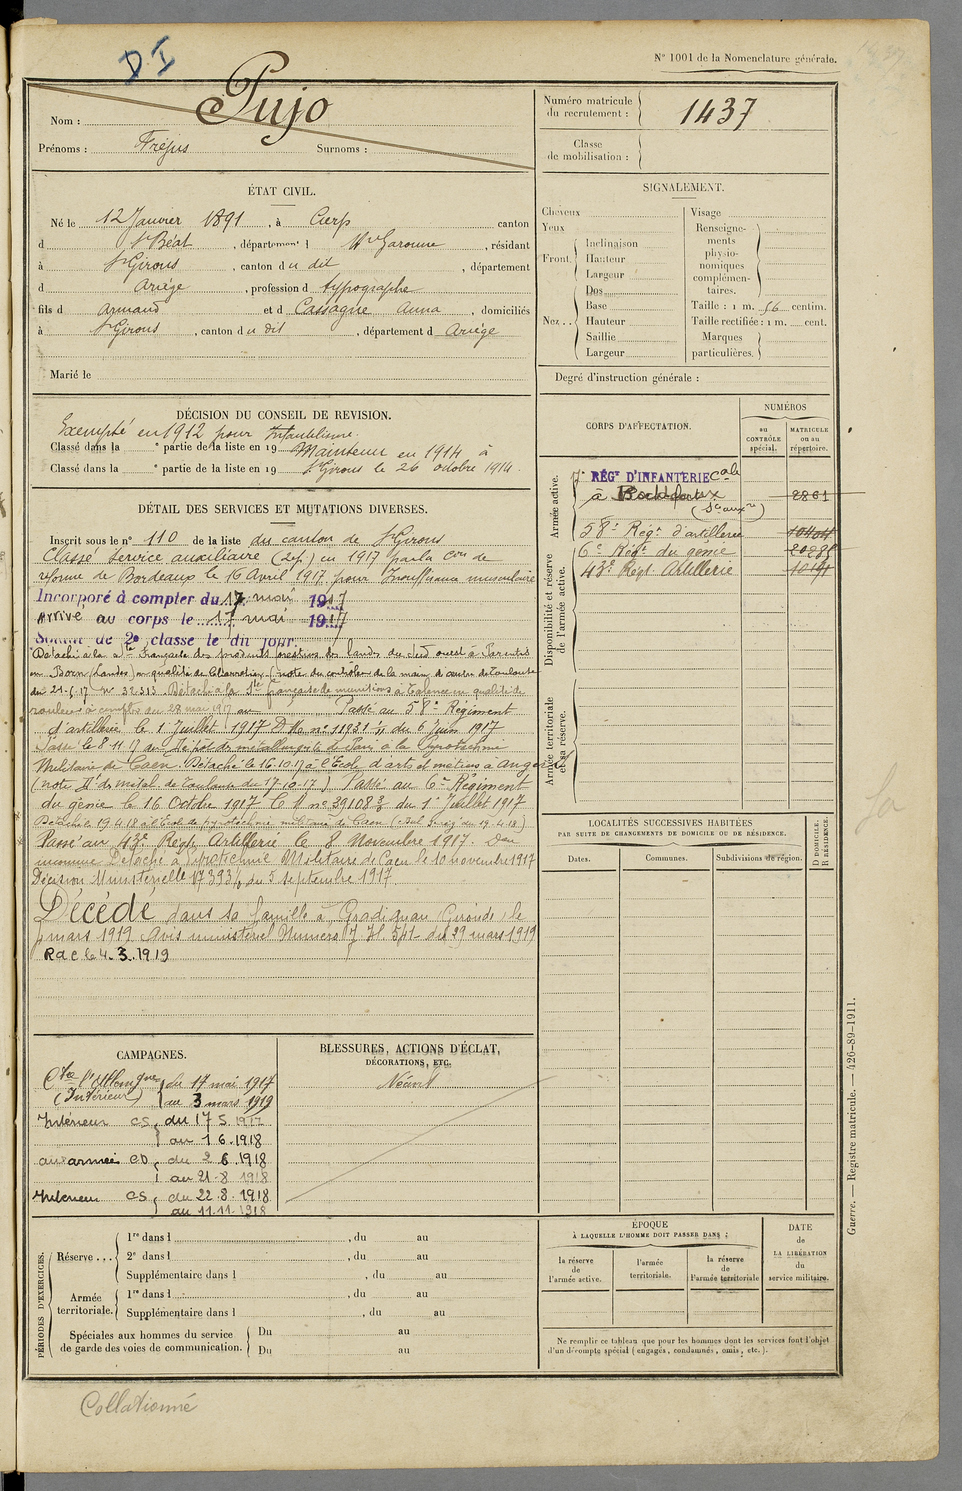 DI
N° 1001 de la Nomenclature générale.
Nom : Pujo
Prénoms : Fréjus Surnoms :
Numéro matricule du recrutement : 1437
Classe de mobilisation :
ÉTAT CIVIL.
Né le 12 Janvier 1891, à Cierp canton
d St Béat, département d Hte Garonne, résidant
à St Girons, canton du dit, département
d Ariège, profession d typographe
fils d Armand et d Cassagne Anna, domiciliés
à St Girons, canton du dit, département d Ariège
Marié le
SIGNALEMENT.
Cheveux
Yeux
Front. Inclinaison
Hauteur
Largeur
Nez.. Dos
Base
Hauteur
Saillie
Largeur
Visage
Renseignements physionomiques complémentaires.
Taille : 1 m. 56 centim.
Taille rectifiée : 1 m. cent.
Marques particulières.
Degré d'instruction générale :
DÉCISION DU CONSEIL DE REVISION.
Exempté en 1912 pour Infantilisme.
Classé dans la e partie de la liste en 19 Maintenu en 1914 à
Classé dans la e partie de la liste en 19 St Girons le 26 octobre 1914.
CORPS D'AFFECTATION.
NUMÉROS
au CONTRÔLE spécial.
MATRICULE ou au répertoire.
Armée active.
7e RÉGt D'INFANTERIE Cale
à (Sce auxre) 2861
Disponibilité et réserve de l'armée active.
58e Régt d'artillerie
6e Régt du génie
43e Régt Artillerie
Armée territoriale et sa réserve.
DÉTAIL DES SERVICES ET MUTATIONS DIVERSES.
Inscrit sous le n° 110 de la liste du canton de St Girons
Classé service auxiliaire (2ef) en 1917 par la Con de
réforme de Bordeaux le 16 Avril 1917 pour Insuffisance musculaire
Incorporé à compter du 17 mai 1917
Arrivé au corps le 17 mai 1917
Soldat de 2e classe le dit jour.
Détaché à la Sté Française des produits résineux des landes du Sud ouest à Parentis
en Born (Landes) en qualité de (note du contrôle de la main d'œuvre de Toulouse
du 21-5-17 n° 32313. Détaché à la Sté française de munitions à Talence en qualité de
à compter du 28 mai 1917 Passé au 58e Régiment
d'artillerie le 1er Juillet 1917 D M n° 11931 du 6 Juin 1917
Passé le 8 11 17 au Dépôt des métallurgiste de Paris à la Pyrotechnie
Militaire de Caen. Détaché le 16.10.17 à l'École d'arts et métiers à Angers
(note Dt des métal. de Toulouse du 17.10.17) Passé au 6e Régiment
du génie le 16 Octobre 1917 C M n° 39108 du 1er Juillet 1917
Détaché 19 4 18 à l'École de pyrotechnie militaire de Caen
Passé au 43e Régt Artillerie le 8 Novembre 1917.
Détaché à Pyrotechnie Militaire de Caen le 10 novembre 1917
Décision Ministérielle 17393 du 5 septembre 1917.
Décédé dans sa famille à Gradignan (Gironde) le
3 mars 1919 Avis ministériel Numéro 541 du 29 mars 1919
R d C le 4.3.1919
LOCALITÉS SUCCESSIVES HABITÉES
PAR SUITE DE CHANGEMENTS DE DOMICILE OU DE RÉSIDENCE.
Dates. Communes. Subdivisions de région. D DOMICILE. R RÉSIDENCE.
CAMPAGNES.
Ctre l'Allemgne du 17 mai 1917
(Intérieur) au 3 mars 1919
Intérieur CS du 17 5 1917
au 1 6.1918
aux armées CD du 2 6.1918
au 21-8 1918
Intérieur CS du 22.8.1918
au 11.11.1918
BLESSURES, ACTIONS D'ÉCLAT,
DÉCORATIONS, ETC.
Néant
PÉRIODES D'EXERCICES.
Réserve... 1re dans l , du au
2e dans l , du au
Supplémentaire dans l , du au
Armée territoriale. 1re dans l , du au
Supplémentaire dans l , du au
Spéciales aux hommes du service de garde des voies de communication. Du au
Du au
ÉPOQUE
À LAQUELLE L'HOMME DOIT PASSER DANS :
la réserve de l'armée active.
l'armée territoriale.
la réserve de l'armée territoriale
DATE de LA LIBÉRATION du service militaire.
Ne remplir ce tableau que pour les hommes dont les services font l'objet
d'un décompte spécial (engagés, condamnés, omis, etc.).
Guerre. — Registre matricule. — 426-89-1911.
Collationné